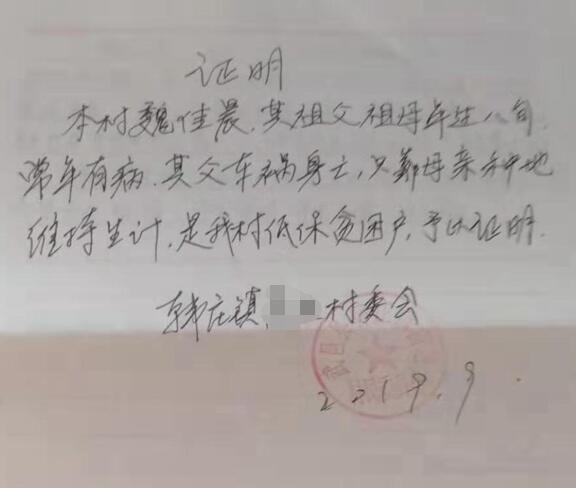 证明
本村魏佳晨，其祖父祖母年过八旬，
常年有病，其父车祸身亡，只靠母亲种地
维持生计，是我村低保贫困户，予以证明.
韩庄镇 村委会
2019.9.